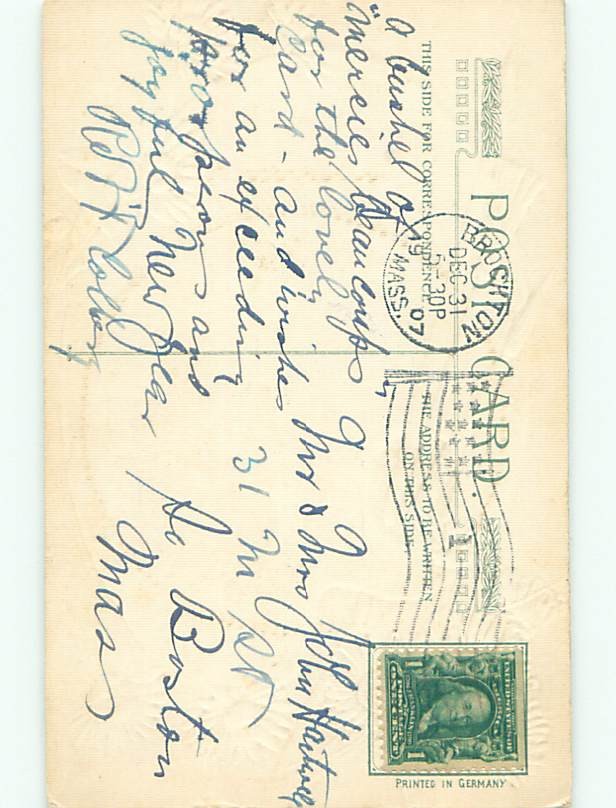 POST CARD
THIS SIDE FOR CORRESPONDENCE
THE ADDRESS TO BE WRITTEN
ON THIS SIDE
BROCKTON
DEC 31
5-30P
07
MASS.
a bushel of
"mercies beaucoups"
for the lovely
card - and wishes
for an exceeding
prosperous and
joyful New Year
Mr & Mrs John Hartwell
31 M St
So Boston
Mass
1 1
PRINTED IN GERMANY